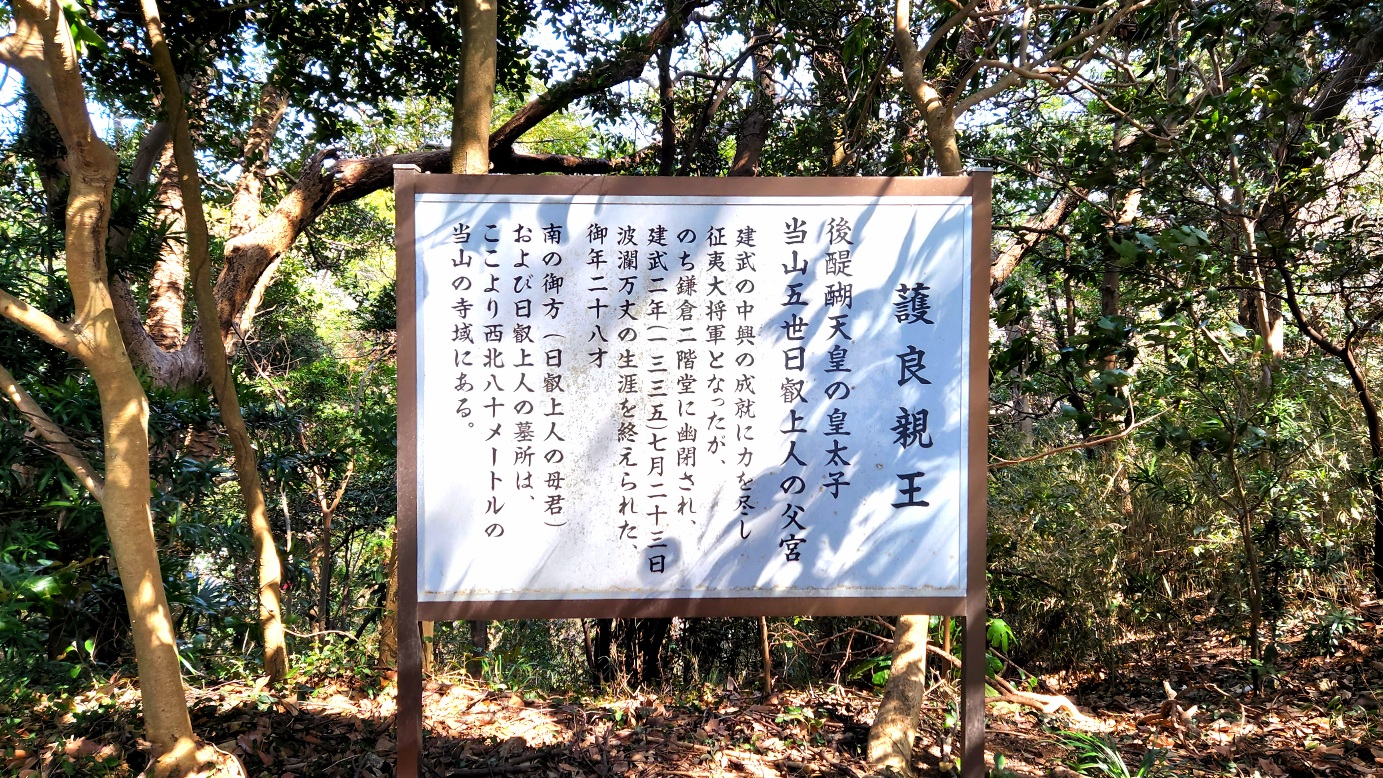 護良親王
後醍醐天皇の皇太子
当山五世日叡上人の父宮
建武の中興の成就に力を尽し
征夷大将軍となったが、
のち鎌倉二階堂に幽閉され、
建武二年(一三三五)七月二十三日
波瀾万丈の生涯を終えられた、
御年二十八才
南の御方(日叡上人の母君)
および日叡上人の墓所は、
ここより西北八十メートルの
当山の寺域にある。